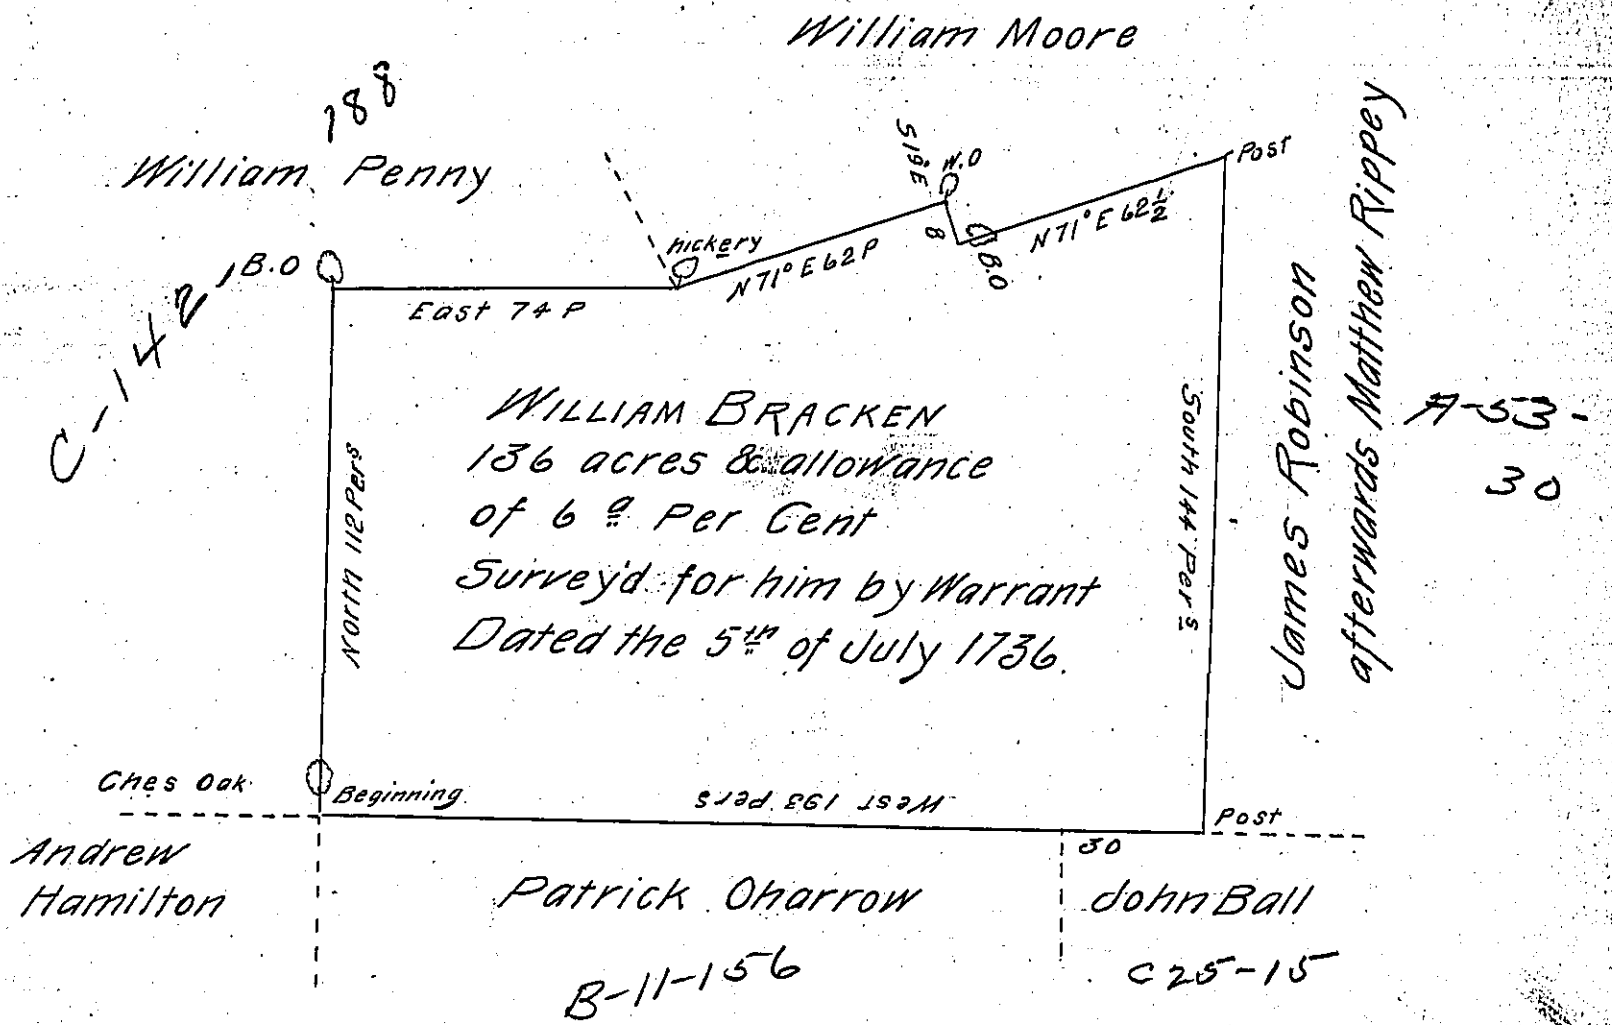 William Moore
188
William Penny
C-142-
B.O
hickery
S 19° E
W.O
8
B.O
Post
East 74 P
N 71° E 62 P
N 71° E 62 1/2
James Robinson
afterwards Matthew Rippey
A-53-
30
WILLIAM BRACKEN
136 acres & allowance
of 6 a Per Cent
Survey'd for him by Warrant
Dated the 5th of July 1736.
North 112 Pers
South 144 Pers
Ches Oak
Beginning
West 193 Pers
Post
30
Andrew
Hamilton
Patrick Oharrow
John Ball
B-11-156
C25-15